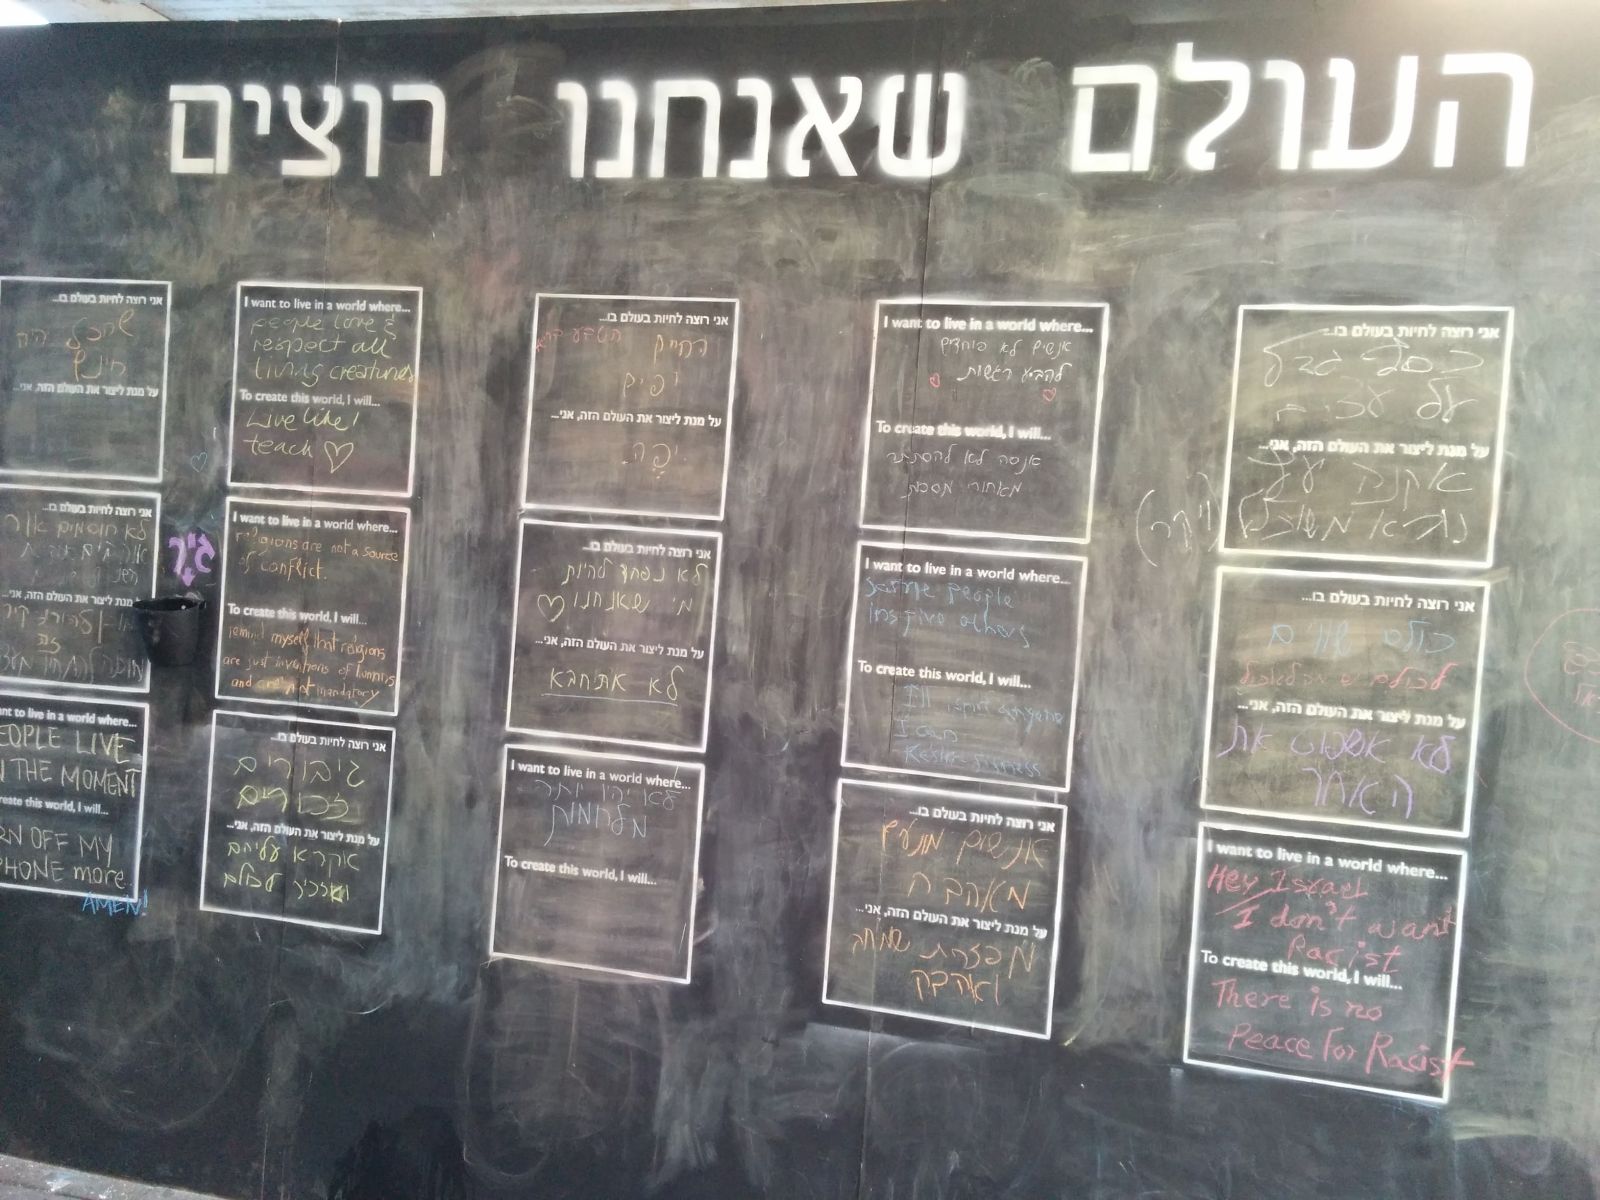 העולם שאנחנו רוצים
אני רוצה לחיות בעולם בו...
כסף גדל
על עצים
על מנת ליצור את העולם הזה, אני...
אקנה עץ
נורא משוכלל
(ויקר)
אני רוצה לחיות בעולם בו...
כולם שווים
לכולם יש מה לאכול
על מנת ליצור את העולם הזה, אני...
לא אשפוט את
האחר
I want to live in a world where...
Hey Israel
I don't want
Racist
To create this world, I will...
There is no
Peace For Racist
I want to live in a world where...
אנשים לא פוחדים
להביע רגשות
To create this world, I will...
אנסה לא להסתתר
מאחורי מסכות
I want to live in a world where...
people
inspire others
To create this world, I will...
I'll
I can
אני רוצה לחיות בעולם בו...
אנשים מונעים
מאהבה
על מנת ליצור את העולם הזה, אני...
מפזרת שמחה
ואהבה
אני רוצה לחיות בעולם בו...
החיים הטבע
יפים
על מנת ליצור את העולם הזה, אני...
יפה.
אני רוצה לחיות בעולם בו...
לא נפחד להיות
מי שאנחנו
על מנת ליצור את העולם הזה, אני...
לא אתחבא
I want to live in a world where...
לא יהיו יותר
מלחמות
To create this world, I will...
I want to live in a world where...
people love &
respect all
living creatures
To create this world, I will...
Live like!
teach
I want to live in a world where...
religions are not a source
of conflict.
To create this world, I will...
remind myself that religions
are just inventions of humans
and are not mandatory
אני רוצה לחיות בעולם בו...
גיבורים
זכורים
על מנת ליצור את העולם הזה, אני...
אקרא עליהם
ואזכיר לכולם
אני רוצה לחיות בעולם בו...
שהכל יהיה
חינם
על מנת ליצור את העולם הזה, אני...
גיר
אני רוצה לחיות בעולם בו...
לא חוסמים
מנת ליצור את העולם הזה, אני...
קיר
זה
nt to live in a world where...
EOPLE LIVE
THE MOMENT
reate this world, I will...
RN OFF MY
PHONE more
AMEN!